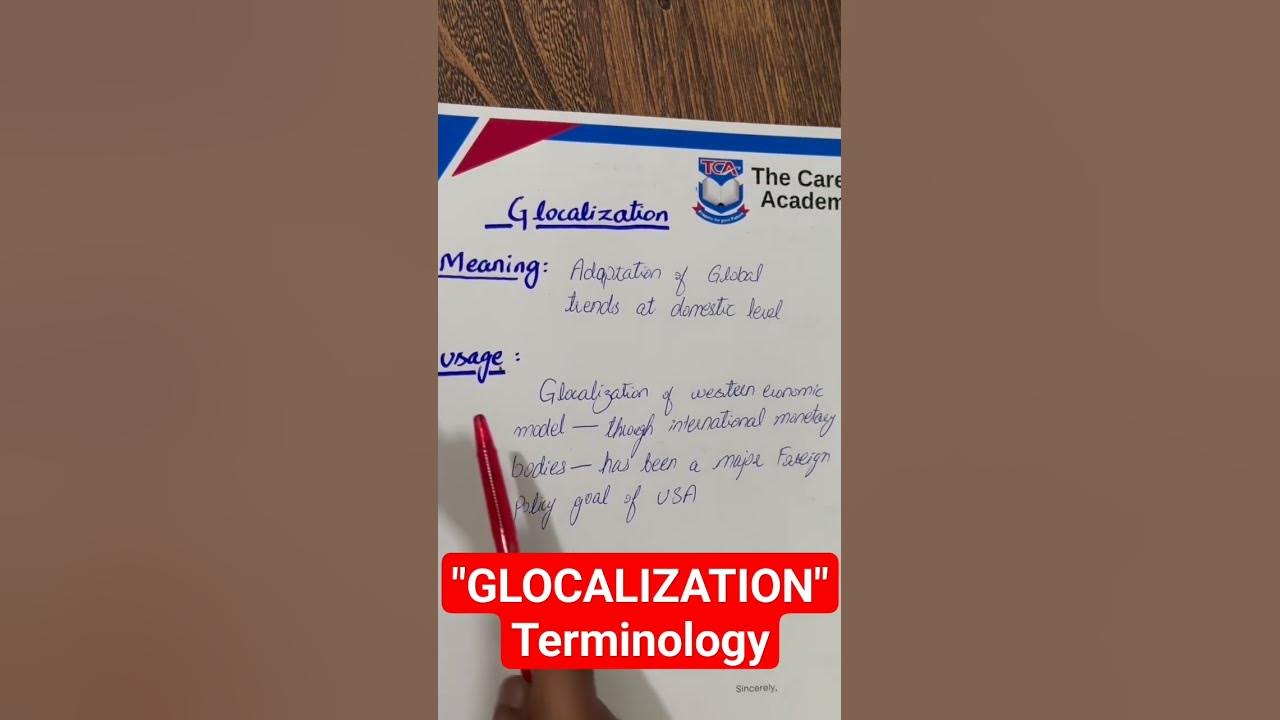 TCA
The Care
Academ
Prepare for your Future
Glocalization
Meaning: Adaptation of Global
trends at domestic level
Usage:
Glocalization of western economic
model — through international monetary
bodies — has been a major Foreign
Policy goal of USA
"GLOCALIZATION"
Terminology
Sincerely,